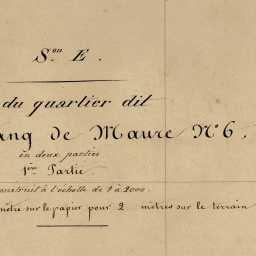 Son E.
du quartier dit
ang de Maure N°6.
en deux parties
1ère Partie
construit à l'échelle de 1 à 2000.
mètre sur le papier pour 2 mètres sur le terrain